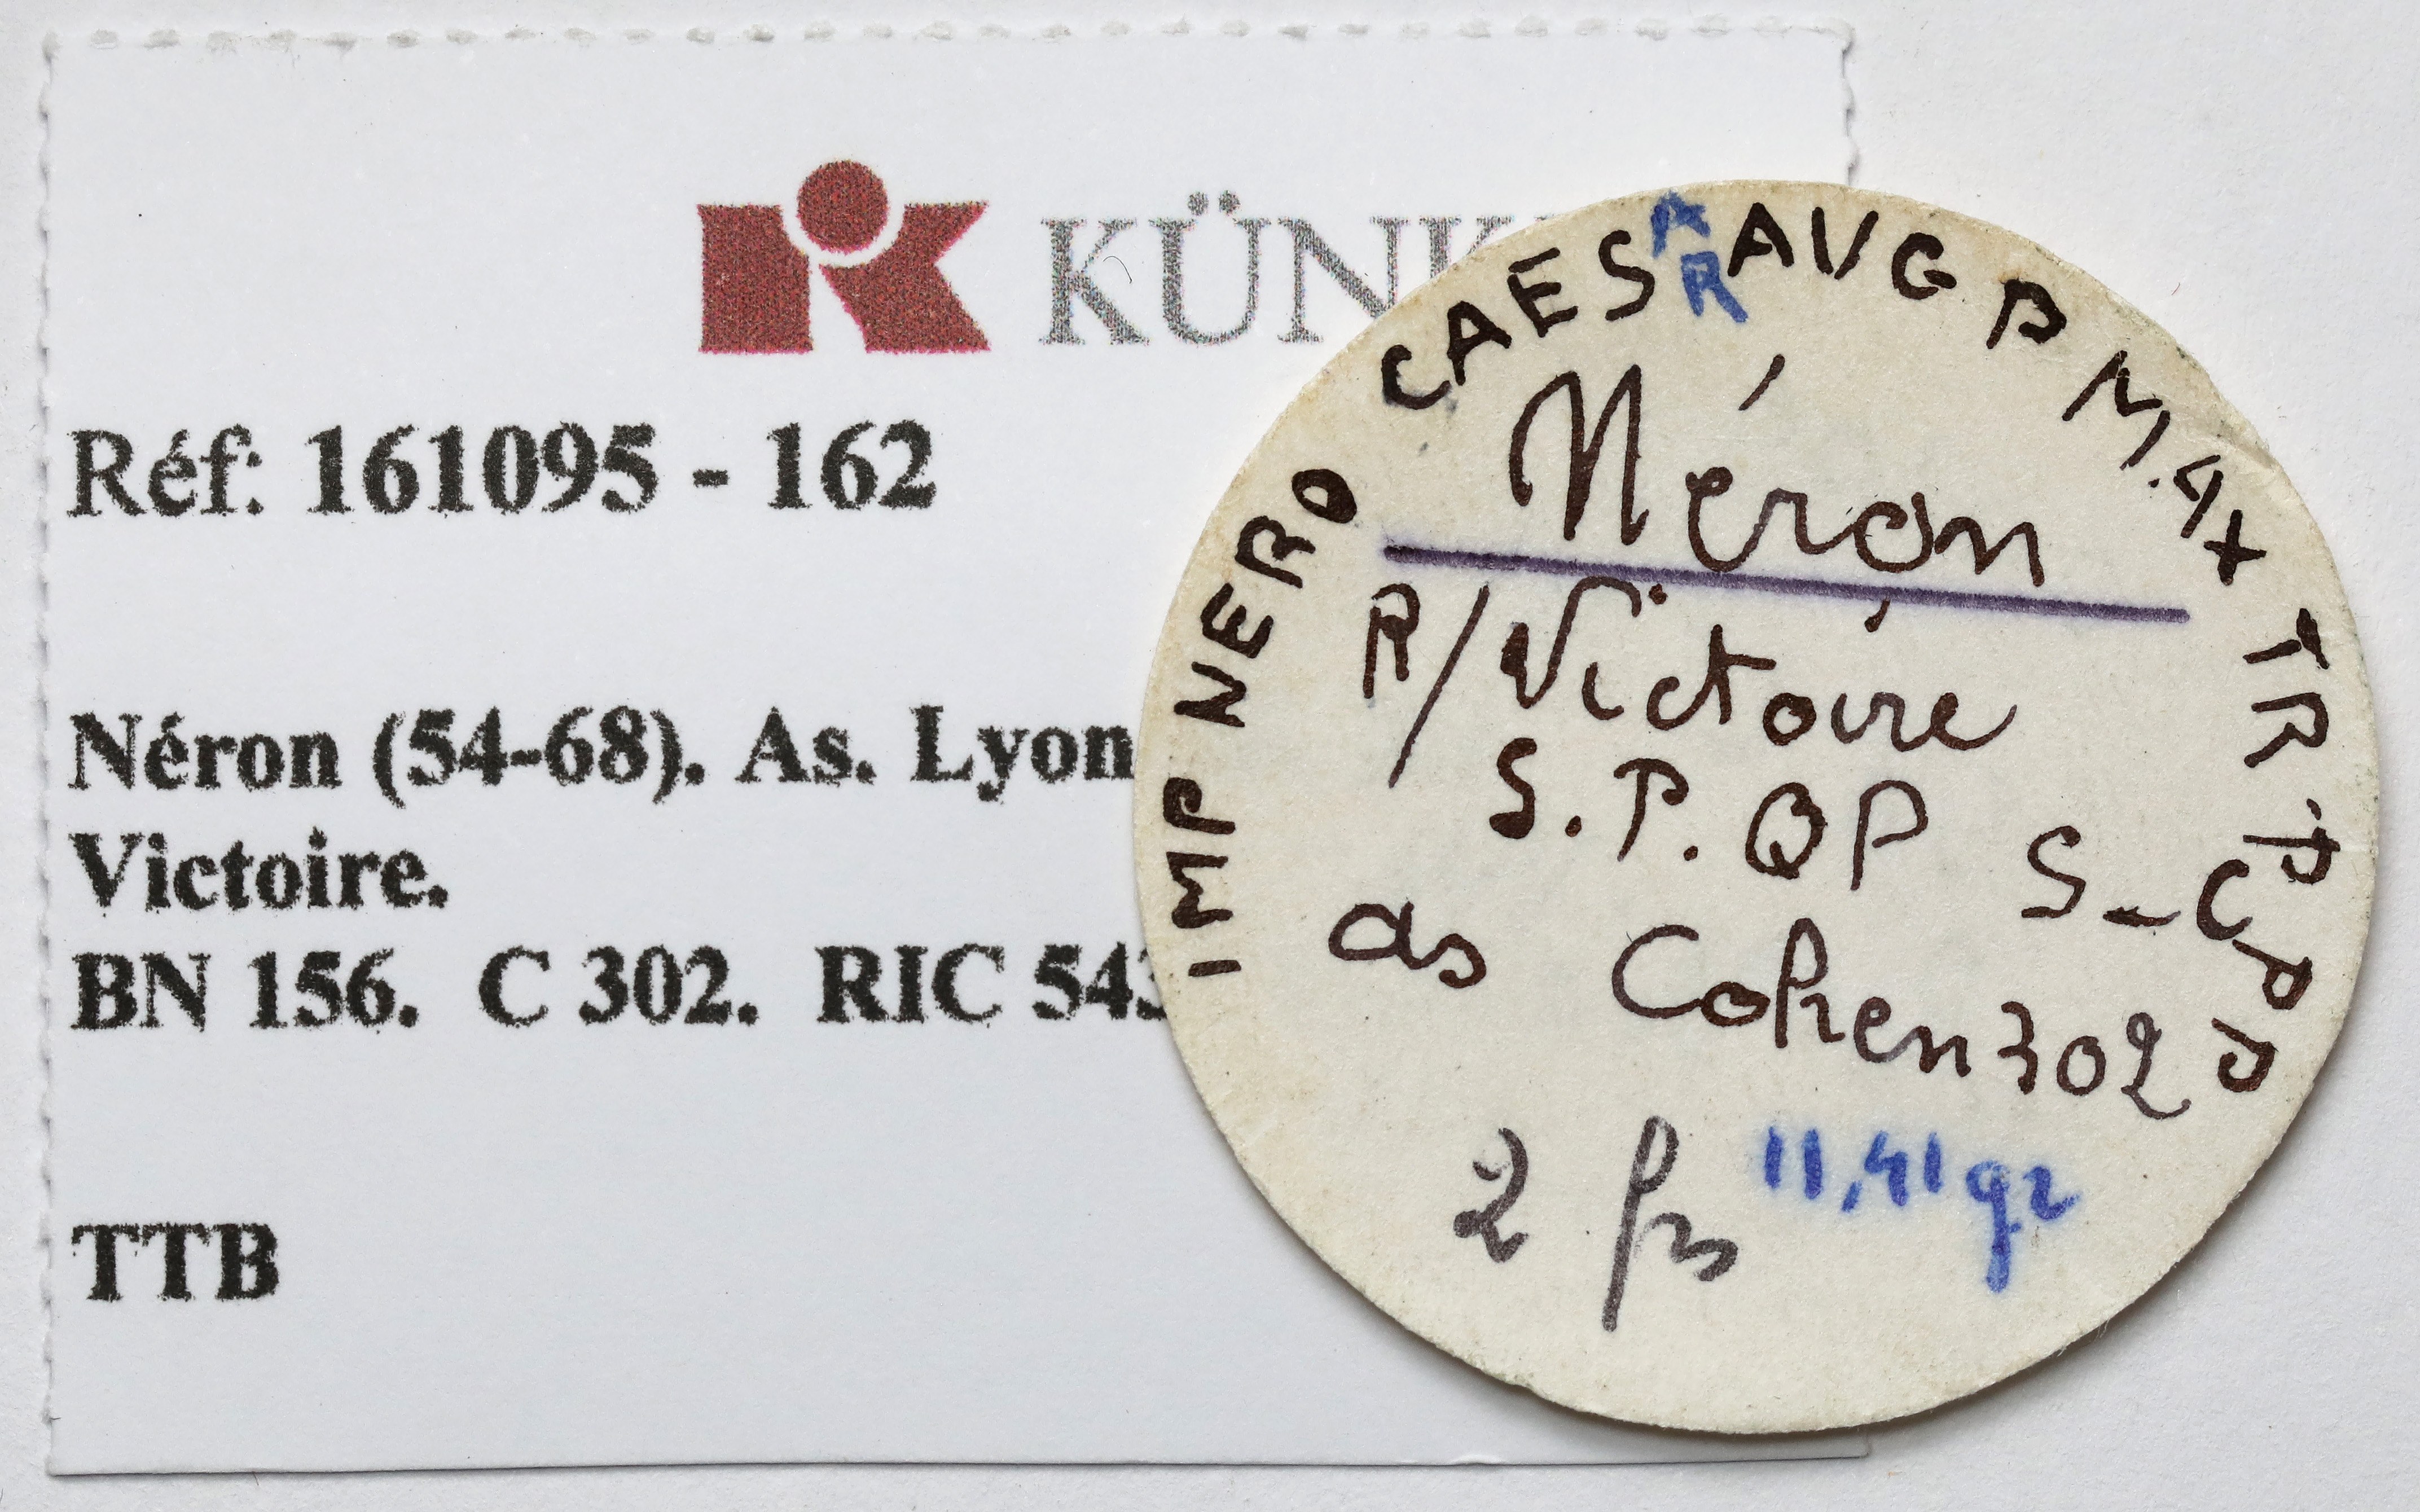 KÜN
Réf: 161095 - 162
Néron (54-68). As. Lyon
Victoire.
BN 156. C 302. RIC 543
TTB
IMP NERO CAESAR AVG P MAX TR P PP
Néron
R/Victoire
S.P.QP S_C
as Cohen 302
2 frs 11,41 gr